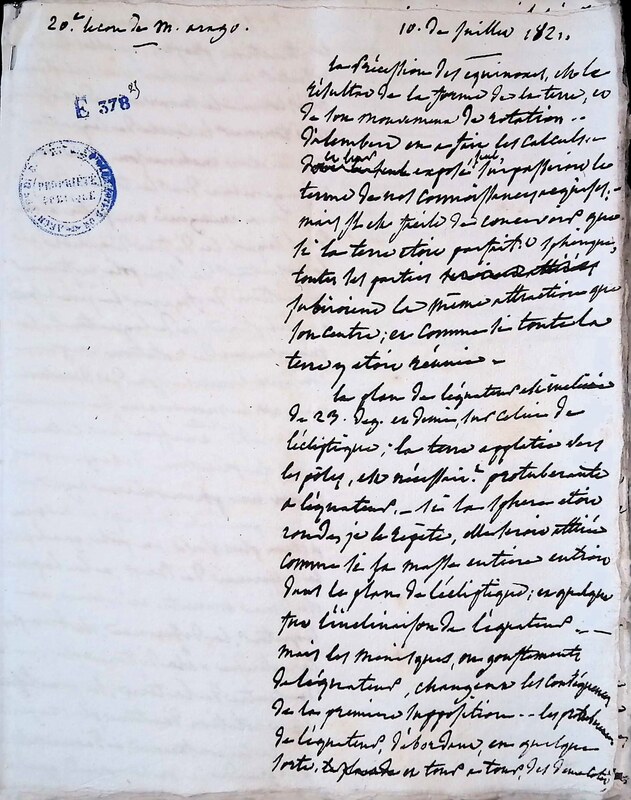 20.e leçon de M. arago.
10. de Juillet 1821.
E 378
25
PROPRIÉTÉ
PUBLIQUE
la précession des équinoxes, est le
résultat de la forme de la terre, et
de son mouvement de rotation --
d'alembert en a fait les calculs. -
exposé surpasseroit le
terme de nos connoissances acquises; -
mais il est facile de concevoir que
si la terre étoit parfait.t sphérique,
toutes les parties
subiroient la même attraction que
son centre; et comme si toute la
terre y étoit réunie -
le plan de l'équateur est incliné
de 23. deg. et demi, sur celui de
l'écliptique; la terre applatie vers
les pôles, est nécessair.t protuberante
a l'équateur. - si la sphere etoit
ronde, je le répète, elle seroit attirée
comme si sa masse entiere entroit
dans le plan de l'écliptique; en quelque
fut l'inclinaison de l'équateur. -
mais les menisques, ou gonflements
de l'équateur, changent les conséquences
de la premiere supposition -- les protuberances
de l'équateur, débordant, en quelque
sorte, et tour a tour, des deux cotés